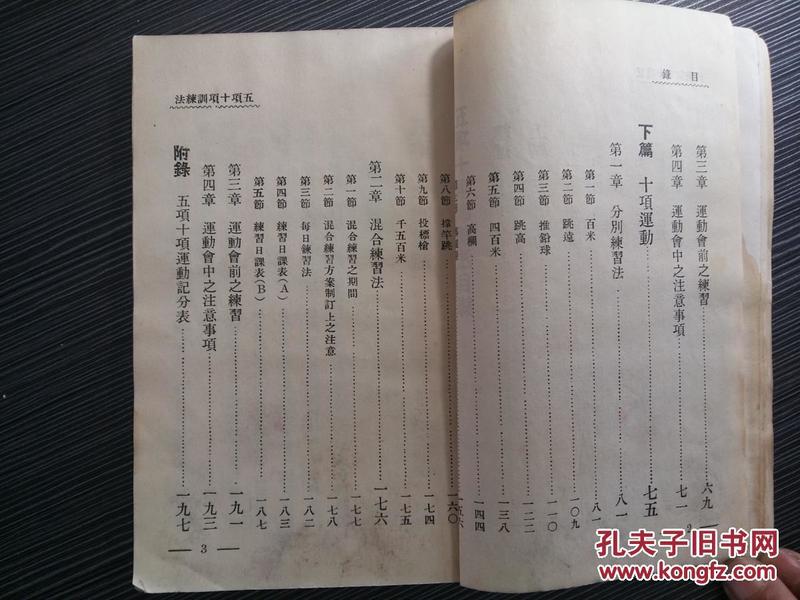 目錄
第三章 運動會前之練習……六九
第四章 運動會中之注意事項……七一
下篇 十項運動……七五
第一章 分別練習法……八一
第一節 百米……八一
第二節 跳遠……一〇九
第三節 推鉛球……一一〇
第四節 跳高……一二二
第五節 四百米……一三八
第六節 高欄……一四四
一五六
五項十項訓練法
第八節 撑竿跳……一六〇
第九節 投標槍……一七四
第十節 千五百米……一七五
第二章 混合練習法……一七六
第一節 混合練習之期間……一七七
第二節 混合練習方案制訂上之注意……一七八
第三節 每日練習法……一八二
第四節 練習日課表(A)……一八三
第五節 練習日課表(B)……一八七
第三章 運動會前之練習……一九一
第四章 運動會中之注意事項……一九三
附錄 五項十項運動記分表……一九七
3
孔夫子旧书网
www.kongfz.com